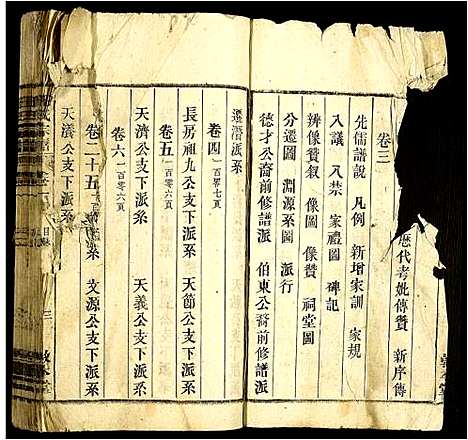 歷代考妣傳贊 新序傳
卷三
先儒譜說 凡例 新增家訓 家規
入議 入禁 家禮圖 碑記
辨像贊叙 像圖 像贊 祠堂圖
分遷圖 淵源系圖 派行
德才公裔前修譜派 伯東公裔前修譜派
遷潛派系
卷四 一百零七頁
長房祖九公支下派系 天節公支下派系
卷五 一百零六頁
天濟公支下派系 天義公支下派系
卷六 一百零六頁
卷二十五 系 文源公支下派系
天濟公支下派系
目錄
三
敦本堂